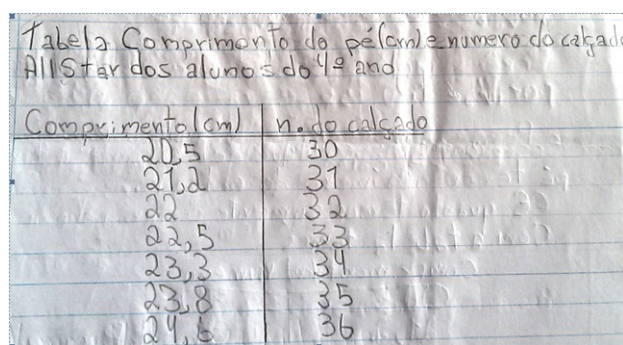 Tabela Comprimento do pé (cm) e numero do calçado
All Star dos alunos do 4º ano
Comprimento (cm) n. do calçado
20,5 30
21,2 31
22 32
22,5 33
23,3 34
23,8 35
24,6 36